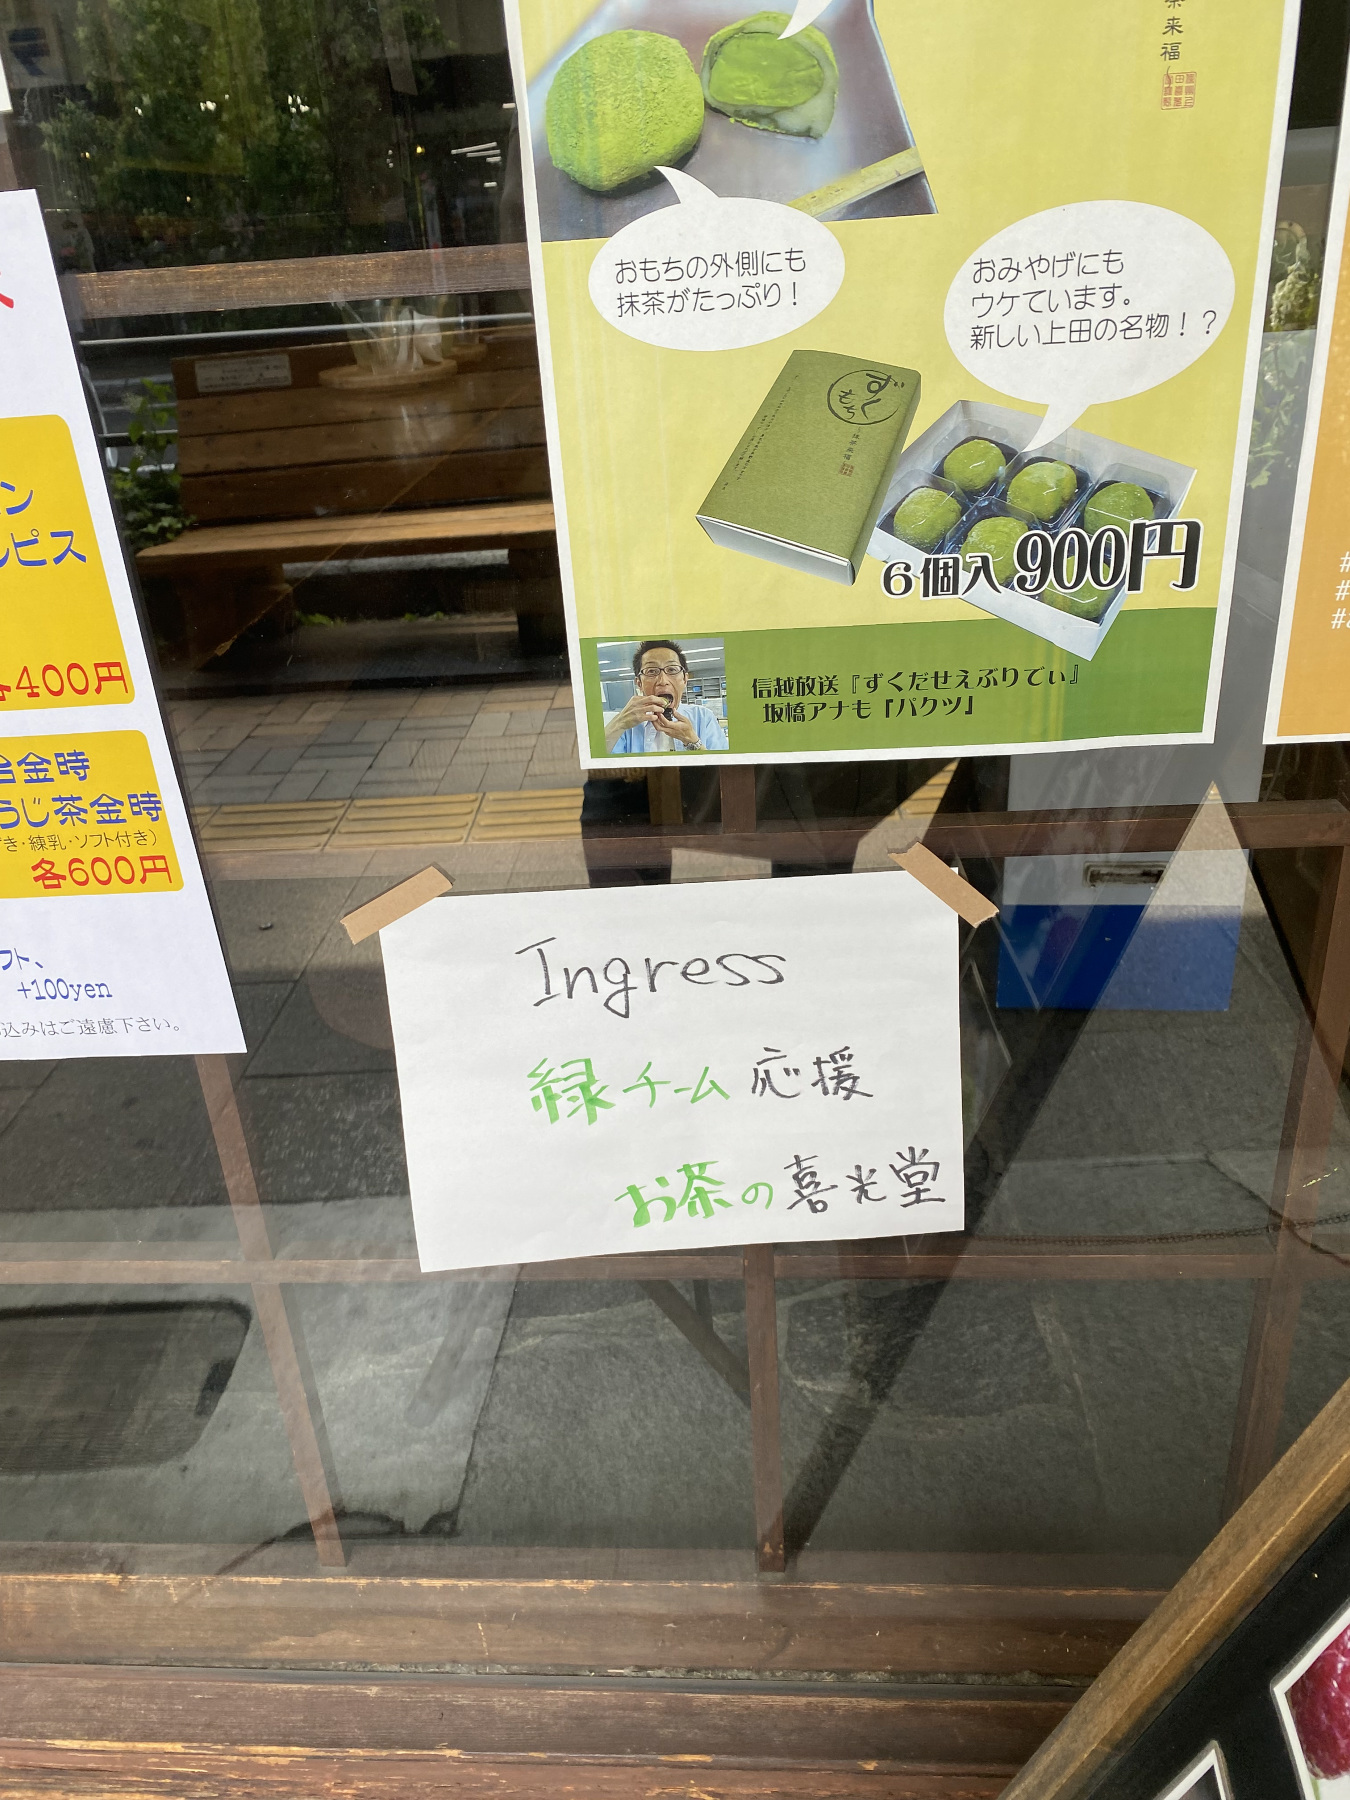 来福
おもちの外側にも
抹茶がたっぷり！
おみやげにも
ウケています。
新しい上田の名物！？
ずく
もち
抹茶来福
6個入 900円
信越放送『ずくだせえぶりでぃ』
坂橋アナも『パクッ』
ン
ルピス
各400円
台金時
うじ茶金時
き・練乳・ソフト付き）
各600円
フト、
+100yen
込みはご遠慮下さい。
Ingress
緑チーム 応援
お茶の喜光堂
#
#
#